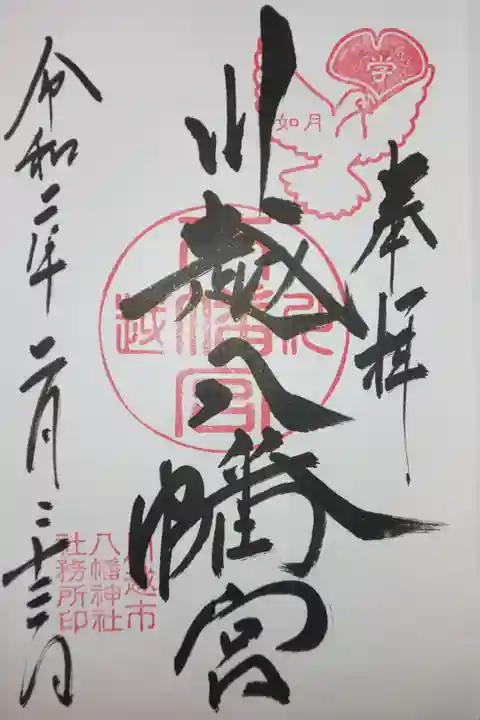 奉拝
学
如月
川越八幡宮
川越
八幡宮
令和二年二月二十三日
川越市
八幡神社
社務所印